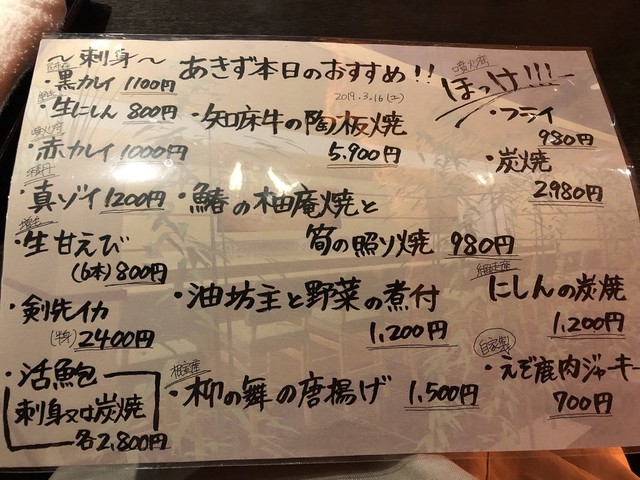 ～刺身～
・黒カレイ 1100円
・生にしん 800円
・赤カレイ 1000円
・真ゾイ 1200円
増毛
・生甘えび
(6本) 800円
・剣先イカ
(半身) 2400円
・活鮑
刺身又は炭焼
各2,800円
あきず本日のおすすめ!!
2019.3.16(土)
・知床牛の陶板焼
5.900円
・鰆の柚庵焼と
筍の照り焼 980円
・油坊主と野菜の煮付
1,200円
・柳の舞の唐揚げ 1,500円
噴火湾
ほっけ!!!
・フライ
980円
・炭焼
2980円
にしんの炭焼
1,200円
自家製
・えぞ鹿肉ジャーキー
700円